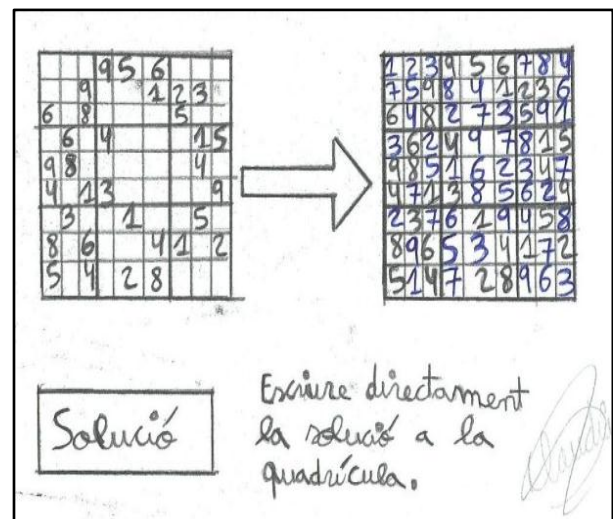 9 5 6
9 1 2 3
6 8 5
6 4 1 5
9 8 4
4 1 3 9
3 1 5
8 6 4 1 2
5 4 2 8
1 2 3 9 5 6 7 8 4
7 5 9 8 4 1 2 3 6
6 4 8 2 7 3 5 9 1
3 6 2 4 9 7 8 1 5
9 8 5 1 6 2 3 4 7
4 7 1 3 8 5 6 2 9
2 3 7 6 1 9 4 5 8
8 9 6 5 3 4 1 7 2
5 1 4 7 2 8 9 6 3
Solució
Escriure directament
la solució a la
quadrícula.